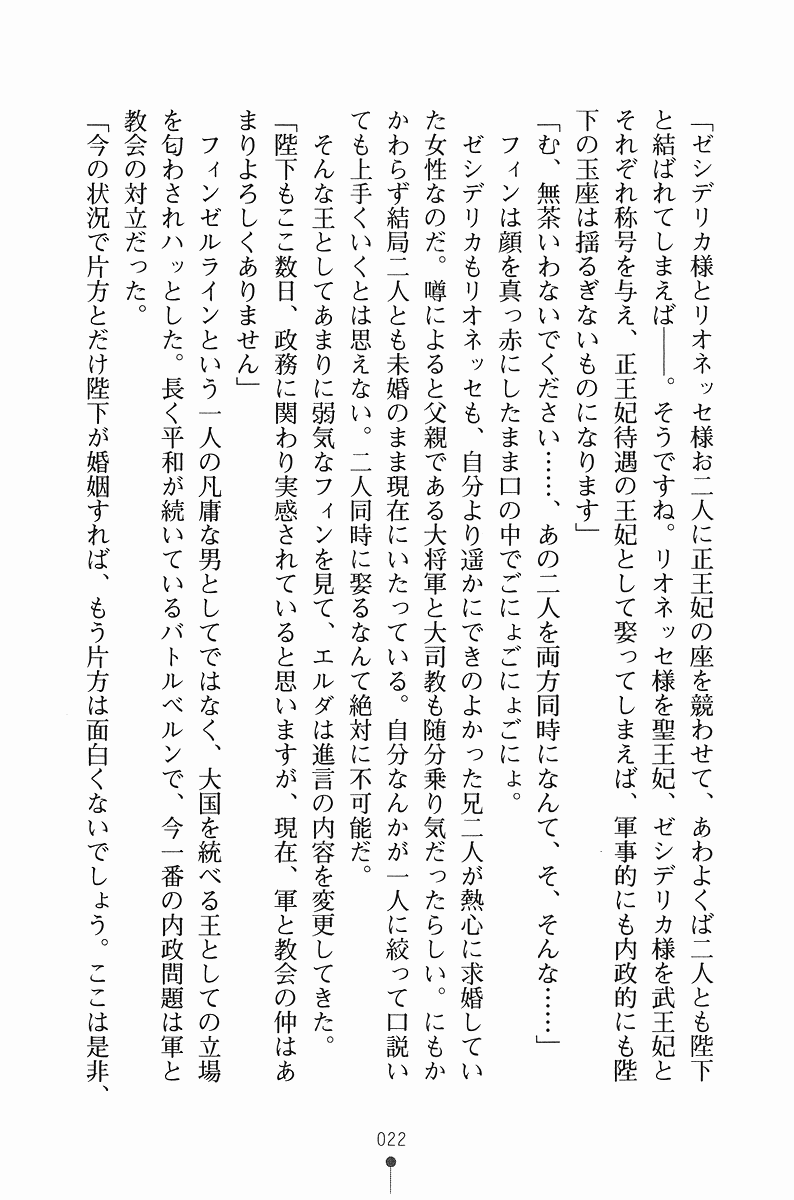 「ゼシデリカ様とリオネッセ様お二人に正王妃の座を競わせて、あわよくば二人とも陛下
と結ばれてしまえば――。そうですね。リオネッセ様を聖王妃、ゼシデリカ様を武王妃と
それぞれ称号を与え、正王妃待遇の王妃として娶ってしまえば、軍事的にも内政的にも陛
下の玉座は揺るぎないものになります」
「む、無茶いわないでください……、あの二人を両方同時になんて、そ、そんな……」
フィンは顔を真っ赤にしたまま口の中でごにょごにょごにょ。
ゼシデリカもリオネッセも、自分より遥かにできのよかった兄二人が熱心に求婚してい
た女性なのだ。噂によると父親である大将軍と大司教も随分乗り気だったらしい。にもか
かわらず結局二人とも未婚のまま現在にいたっている。自分なんかが一人に絞って口説い
ても上手くいくとは思えない。二人同時に娶るなんて絶対に不可能だ。
そんな王としてあまりに弱気なフィンを見て、エルダは進言の内容を変更してきた。
「陛下もここ数日、政務に関わり実感されていると思いますが、現在、軍と教会の仲はあ
まりよろしくありません」
フィンゼルラインという一人の凡庸な男としてではなく、大国を統べる王としての立場
を匂わされハッとした。長く平和が続いているバトルベルンで、今一番の内政問題は軍と
教会の対立だった。
「今の状況で片方とだけ陛下が婚姻すれば、もう片方は面白くないでしょう。ここは是非、
022